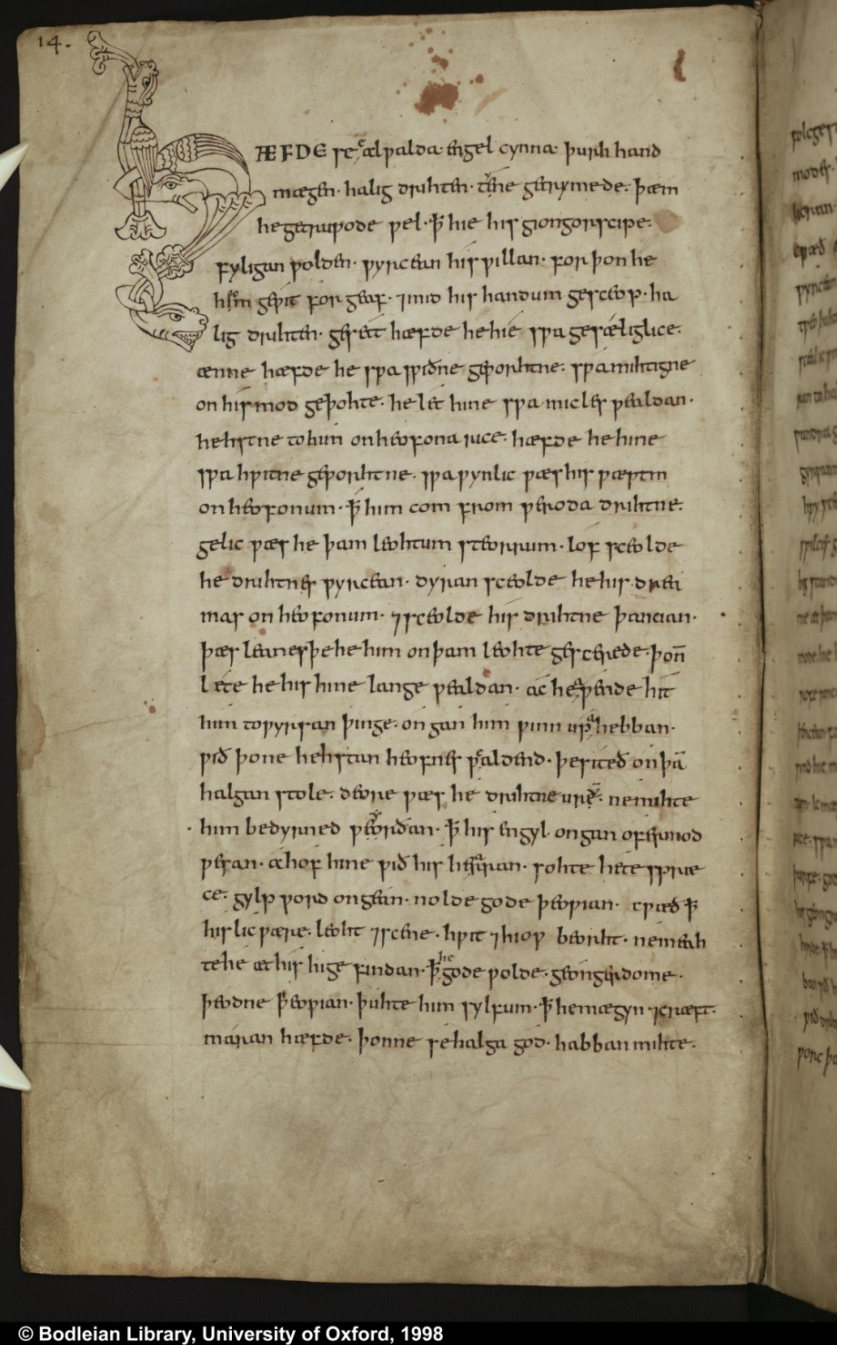 14.
HÆFDE se ealƿalda· engel cynna· þurh hand
mægen· halig drihten· tene getrymede· þæm
he getruƿode ƿel· ꝥ hie his giongorscipe·
fyligan ƿolden· ƿyrcean his ƿillan· for þon he
him geƿit for geaf· ⁊ mid his handum gesceop· ha
lig drihten· gesett hæfde he hie sƿa gesæliglice·
ænne hæfde he sƿa sƿiðne geƿorhtne· sƿa mihtigne
on his mod geþohte· he let hine sƿa micles ƿealdan·
hehstne to him on heofona rice· hæfde he hine
sƿa hƿitne geƿorhtne· sƿa ƿynlic ƿæs his ƿæstm
on heofonum· ꝥ him com from ƿeroda drihtne·
gelic ƿæs he þam leohtum steorrum· lof sceolde
he drihtnes ƿyrcean· dyran sceolde he his drea
mas on heofonum· ⁊ sceolde his drihtne þancian·
þæs leanes þe he him on þam leohte gescerede· þoñ
lete he his hine lange ƿealdan· ac he aƿende hit
him to ƿyrsan þinge· on gan him ƿinn up ahebban·
ƿið þone hehstan heofnes ƿaldend· þe siteð on þā
halgan stole· deore ƿæs he drihtne ure· ne mihte
him bedyrned ƿeorðan· ꝥ his engyl· ongan ofermod
ƿesan· ahof hine ƿið his hearran· sohte hete spræ
ce· gylp ƿord ongean· nolde gode þeoƿian· cƿæð ꝥ
his lic ƿære· leoht ⁊ scene· hƿit ⁊ hioƿ beorht· ne meah
te he æt his hige findan· ꝥ he gode ƿolde· geongerdome·
þeodne þeoƿian· þuhte him sylfum· ꝥ he mægyn ⁊ cræft·
maran hæfde· þonne se halga god· habban mihte·
© Bodleian Library, University of Oxford, 1998